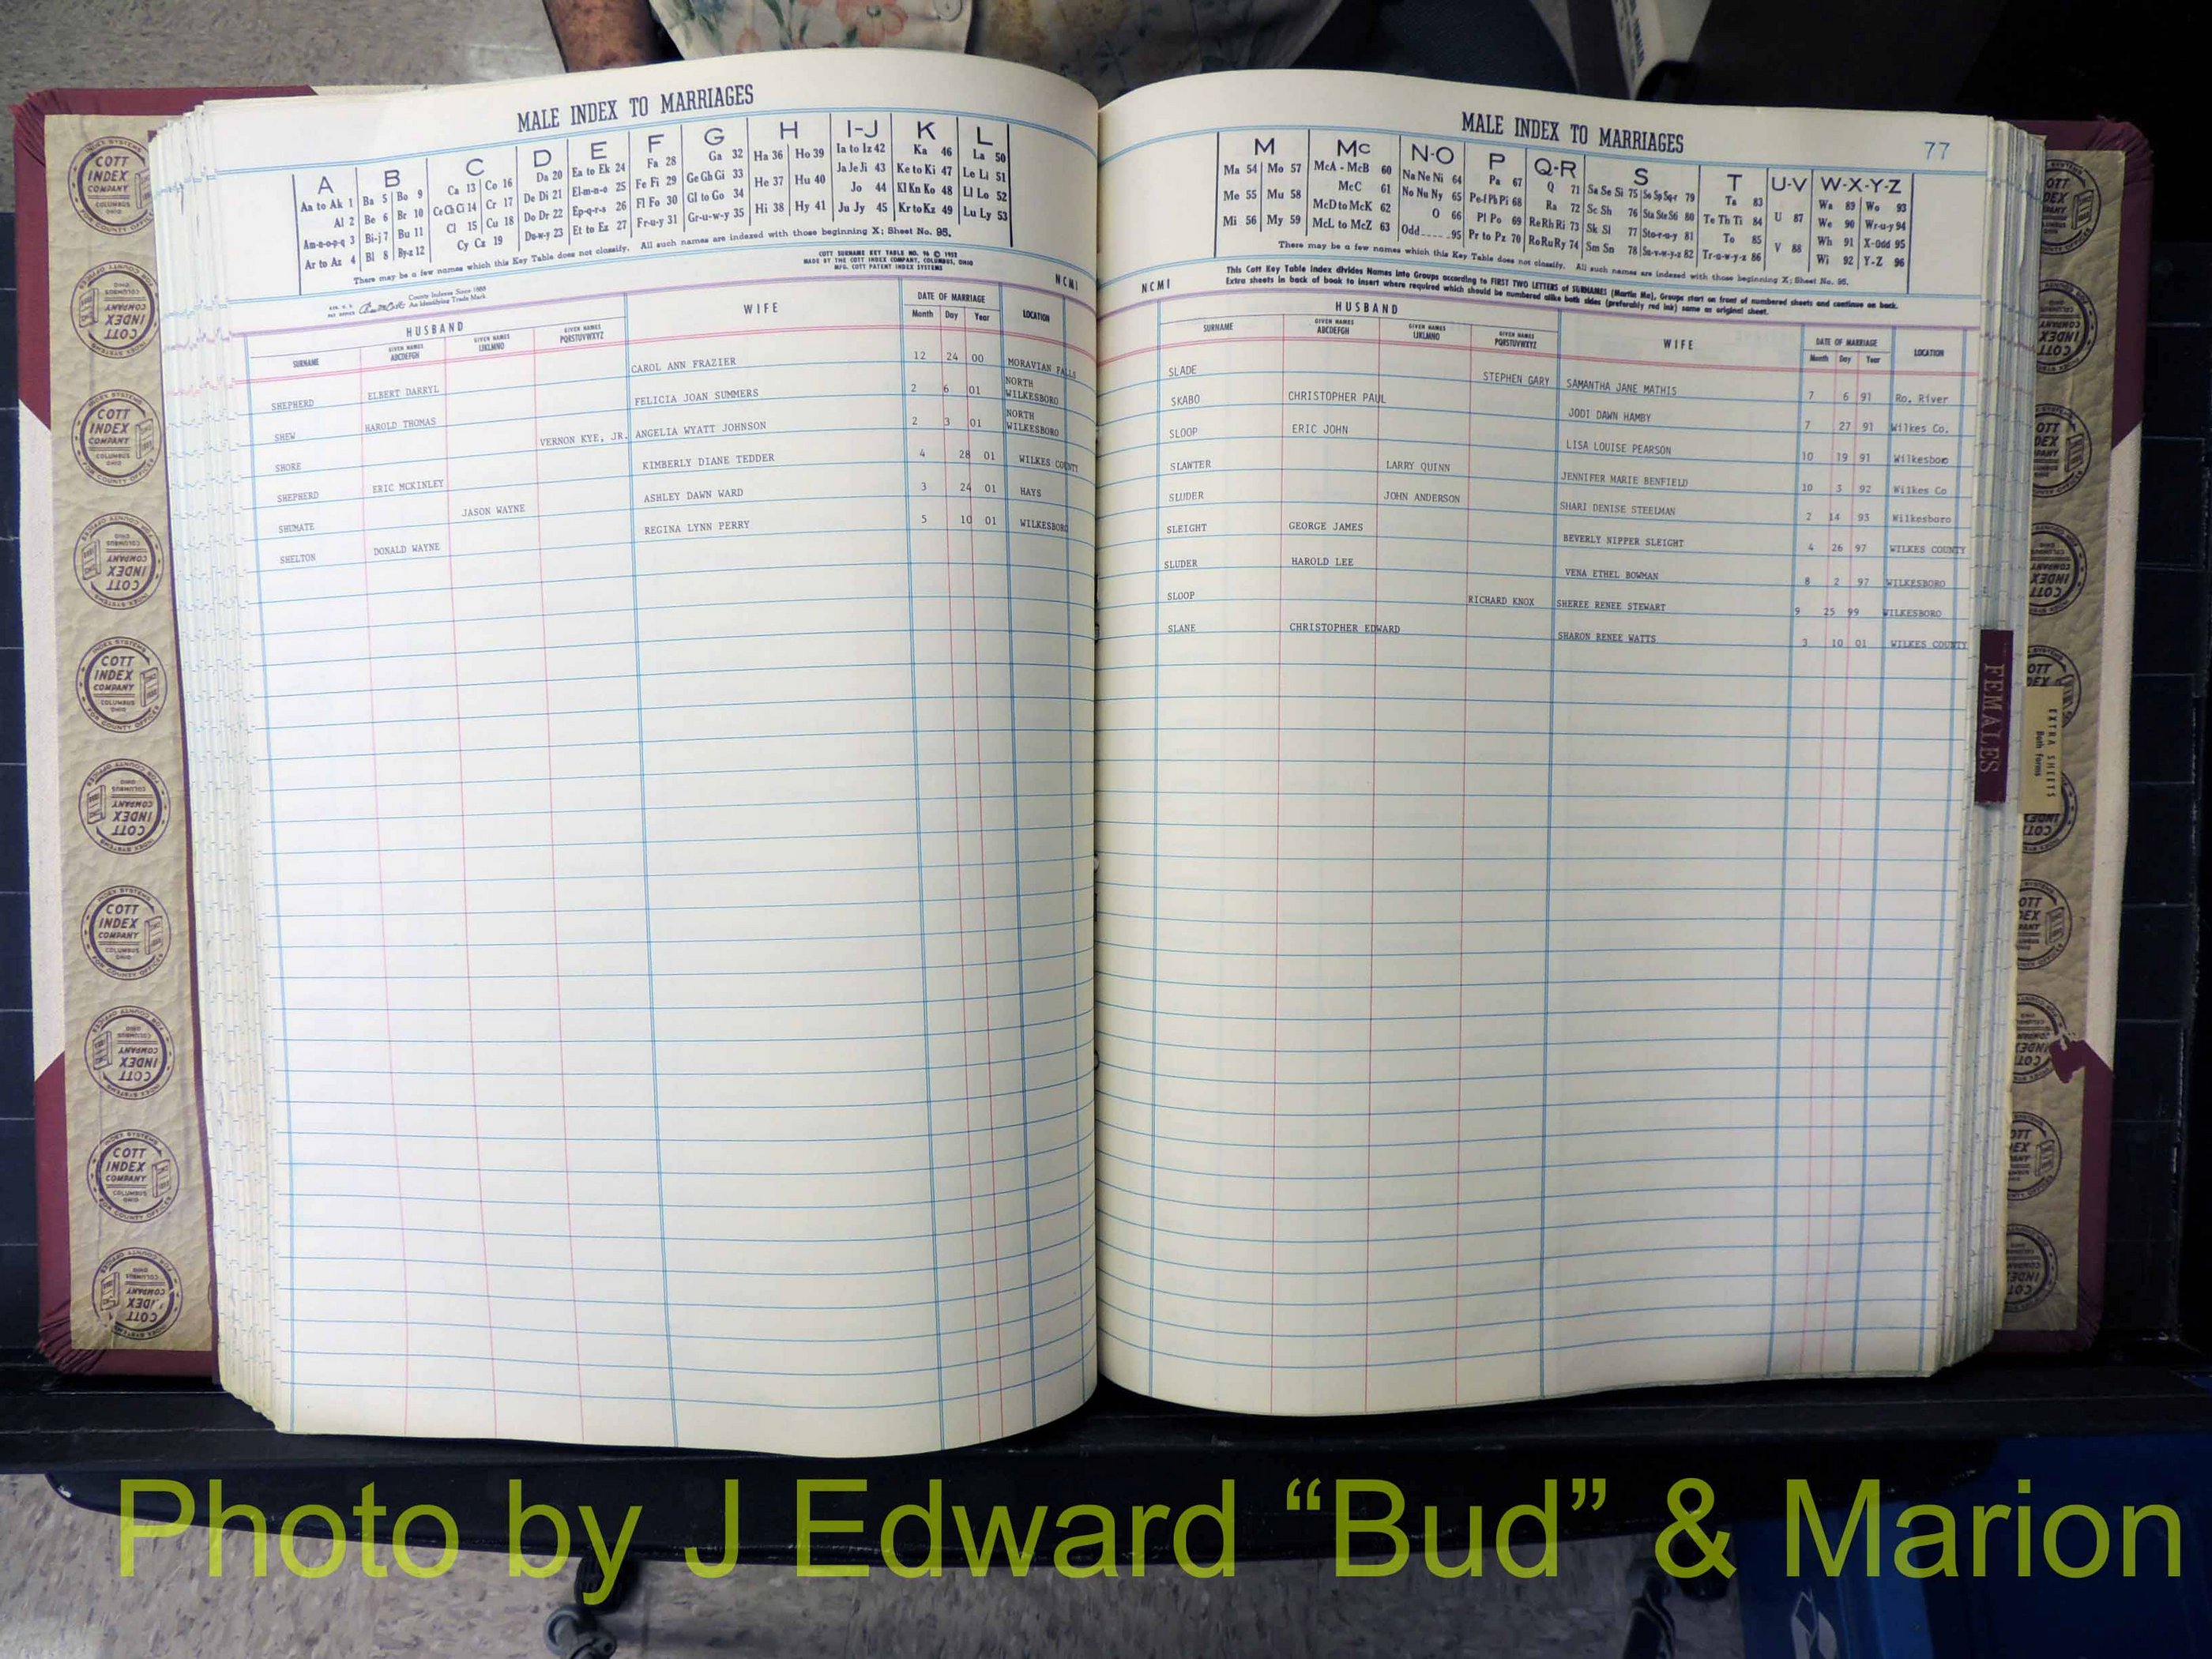 MALE INDEX TO MARRIAGES
A B C D E F G H I-J K L
Aa to Ak 1 Ba 5 Bo 9 Ca 13 Co 16 Da 20 Ea to Ek 24 Fa 28 Ga 32 Ha 36 Ho 39 Ia to Iz 42 Ka 46 La 50
Al 2 Be 6 Br 10 Ce Ch Ci 14 Cr 17 De Di 21 El-m-n-o 25 Fe Fi 29 Ge Gh Gi 33 He 37 Hu 40 Ja Je Ji 43 Ke to Ki 47 Le Li 51
Am-n-o-p-q 3 Bi-j 7 Bu 11 Cl 15 Cu 18 Do Dr 22 Ep-q-r-s 26 Fl Fo 30 Gl to Go 34 Hi 38 Hy 41 Jo 44 Kl Kn Ko 48 Ll Lo 52
Ar to Az 4 Bl 8 By-z 12 Cy Cz 19 Du-w-y 23 Et to Ez 27 Fr-u-y 31 Gr-u-w-y 35 Ju Jy 45 Kr to Kz 49 Lu Ly 53
There may be a few names which this Key Table does not classify. All such names are indexed with those beginning X; Sheet No. 95.
COTT SURNAME KEY TABLE NO. 96 © 1952
MADE BY THE COTT INDEX COMPANY, COLUMBUS, OHIO
MFG. COTT PATENT INDEX SYSTEMS
County Indexes Since 1888
An Identifying Trade Mark
NCMI
HUSBAND WIFE DATE OF MARRIAGE LOCATION
SURNAME GIVEN NAMES ABCDEFGH GIVEN NAMES IJKLMNO GIVEN NAMES PQRSTUVWXYZ Month Day Year
SHEPHERD ELBERT DARRYL CAROL ANN FRAZIER 12 24 00 MORAVIAN FALLS
SHEW HAROLD THOMAS FELICIA JOAN SUMMERS 2 6 01 NORTH WILKESBORO
SHORE VERNON KYE, JR. ANGELIA WYATT JOHNSON 2 3 01 NORTH WILKESBORO
SHEPHERD ERIC MCKINLEY KIMBERLY DIANE TEDDER 4 28 01 WILKES COUNTY
SHUMATE JASON WAYNE ASHLEY DAWN WARD 3 24 01 HAYS
SHELTON DONALD WAYNE REGINA LYNN PERRY 5 10 01 WILKESBORO
MALE INDEX TO MARRIAGES 77
M Mc N-O P Q-R S T U-V W-X-Y-Z
Ma 54 Mo 57 McA - McB 60 Na Ne Ni 64 Pa 67 Q 71 Sa Se Si 75 So Sp Sq-r 79 Ta 83 U 87 Wa 89 Wo 93
Me 55 Mu 58 McC 61 No Nu Ny 65 Pe-f Ph Pi 68 Ra 72 Sc Sh 76 Sta Ste Sti 80 Te Th Ti 84 V 88 We 90 Wr-u-y 94
Mi 56 My 59 McD to McK 62 O 66 Pl Po 69 Re Rh Ri 73 Sk Sl 77 Sto-r-u-y 81 To 85 Wh 91 X-Odd 95
McL to McZ 63 Odd 95 Pr to Pz 70 Ro Ru Ry 74 Sm Sn 78 Su-v-w-y-z 82 Tr-u-w-y-z 86 Wi 92 Y-Z 96
There may be a few names which this Key Table does not classify. All such names are indexed with those beginning X; Sheet No. 95.
This Cott Key Table Index divides Names into Groups according to FIRST TWO LETTERS of SURNAMES (Martin Ma), Groups start on front of numbered sheets and continue on back.
Extra sheets in back of book to insert where required which should be numbered alike both sides (preferably red ink) same as original sheet.
NCMI
HUSBAND WIFE DATE OF MARRIAGE LOCATION
SURNAME GIVEN NAMES ABCDEFGH GIVEN NAMES IJKLMNO GIVEN NAMES PQRSTUVWXYZ Month Day Year
SLADE STEPHEN GARY SAMANTHA JANE MATHIS 7 6 91 Ro. River
SKABO CHRISTOPHER PAUL JODI DAWN HAMBY 7 27 91 Wilkes Co.
SLOOP ERIC JOHN LISA LOUISE PEARSON 10 19 91 Wilkesboro
SLAWTER LARRY QUINN JENNIFER MARIE BENFIELD 10 3 92 Wilkes Co
SLUDER JOHN ANDERSON SHARI DENISE STEELMAN 2 14 93 Wilkesboro
SLEIGHT GEORGE JAMES BEVERLY NIPPER SLEIGHT 4 26 97 WILKES COUNTY
SLUDER HAROLD LEE VENA ETHEL BOWMAN 8 2 97 WILKESBORO
SLOOP RICHARD KNOX SHEREE RENEE STEWART 9 25 99 WILKESBORO
SLANE CHRISTOPHER EDWARD SHARON RENEE WATTS 3 10 01 WILKES COUNTY
FEMALES
EXTRA SHEETS
Both forms
COTT INDEX COMPANY
COLUMBUS OHIO
INDEX SYSTEMS
FOR COUNTY OFFICES
Photo by J Edward “Bud” & Marion